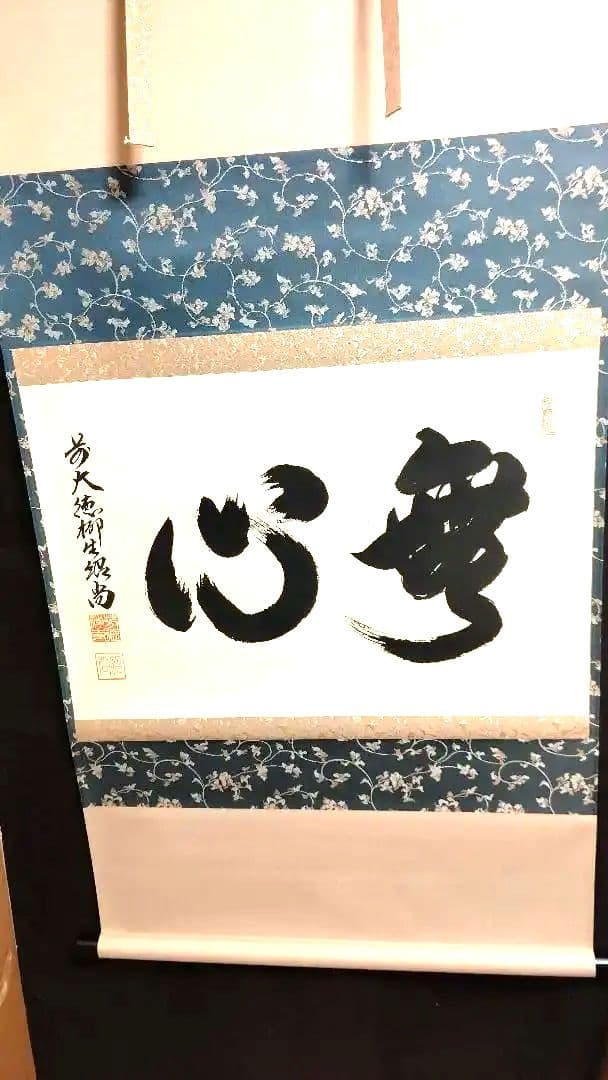 無心
前大德柳生紹尚